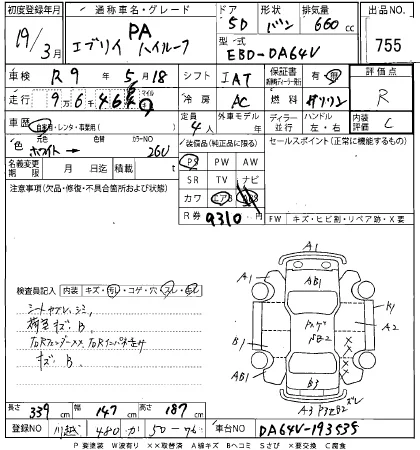 初度登録年月 通称車名・グレード ドア 形状 排気量 出品NO.
19/3月 PA エブリイ ハイルーフ 5D バン 660 cc 755
型式 EBD-DA64V
車検 R9年 5月18 シフト IAT 保証書 有 無 評価点 R
走行 9万6千464 マイル 冷房 AC 燃料 ガソリン
車歴 自家用・レンタ・事業用( ) 定員 4人 外車モデル 年 ディーラー 並行 ハンドル 左・右 内装評価 C
色 元色 ホワイト → 色替 カラーNO 26U
装備品(純正品に限る) セールスポイント(正常に機能するもの)
PS PW AW
名義変更期限 月 日迄 積載 t
SR TV ナビ
注意事項(欠品・修復・不具合箇所および状態)
カワ エアB
R券 9310
FW キズ・ヒビ割・リペア跡・X要
検査員記入 内装 キズ・汚レ・コゲ・穴
シートヤブレ、シミ
荷室キズ、B
キズ B
A1
A1 AB1
A2
B1
AB1
B3
長さ 339 cm 幅 147 cm 高さ 187 cm
登録NO 川越 480 か 50-76 車台NO DA64V-193535
P 要塗装 W波有り ××取替済 A線キズ Bヘコミ Sさび ×要交換 C腐食